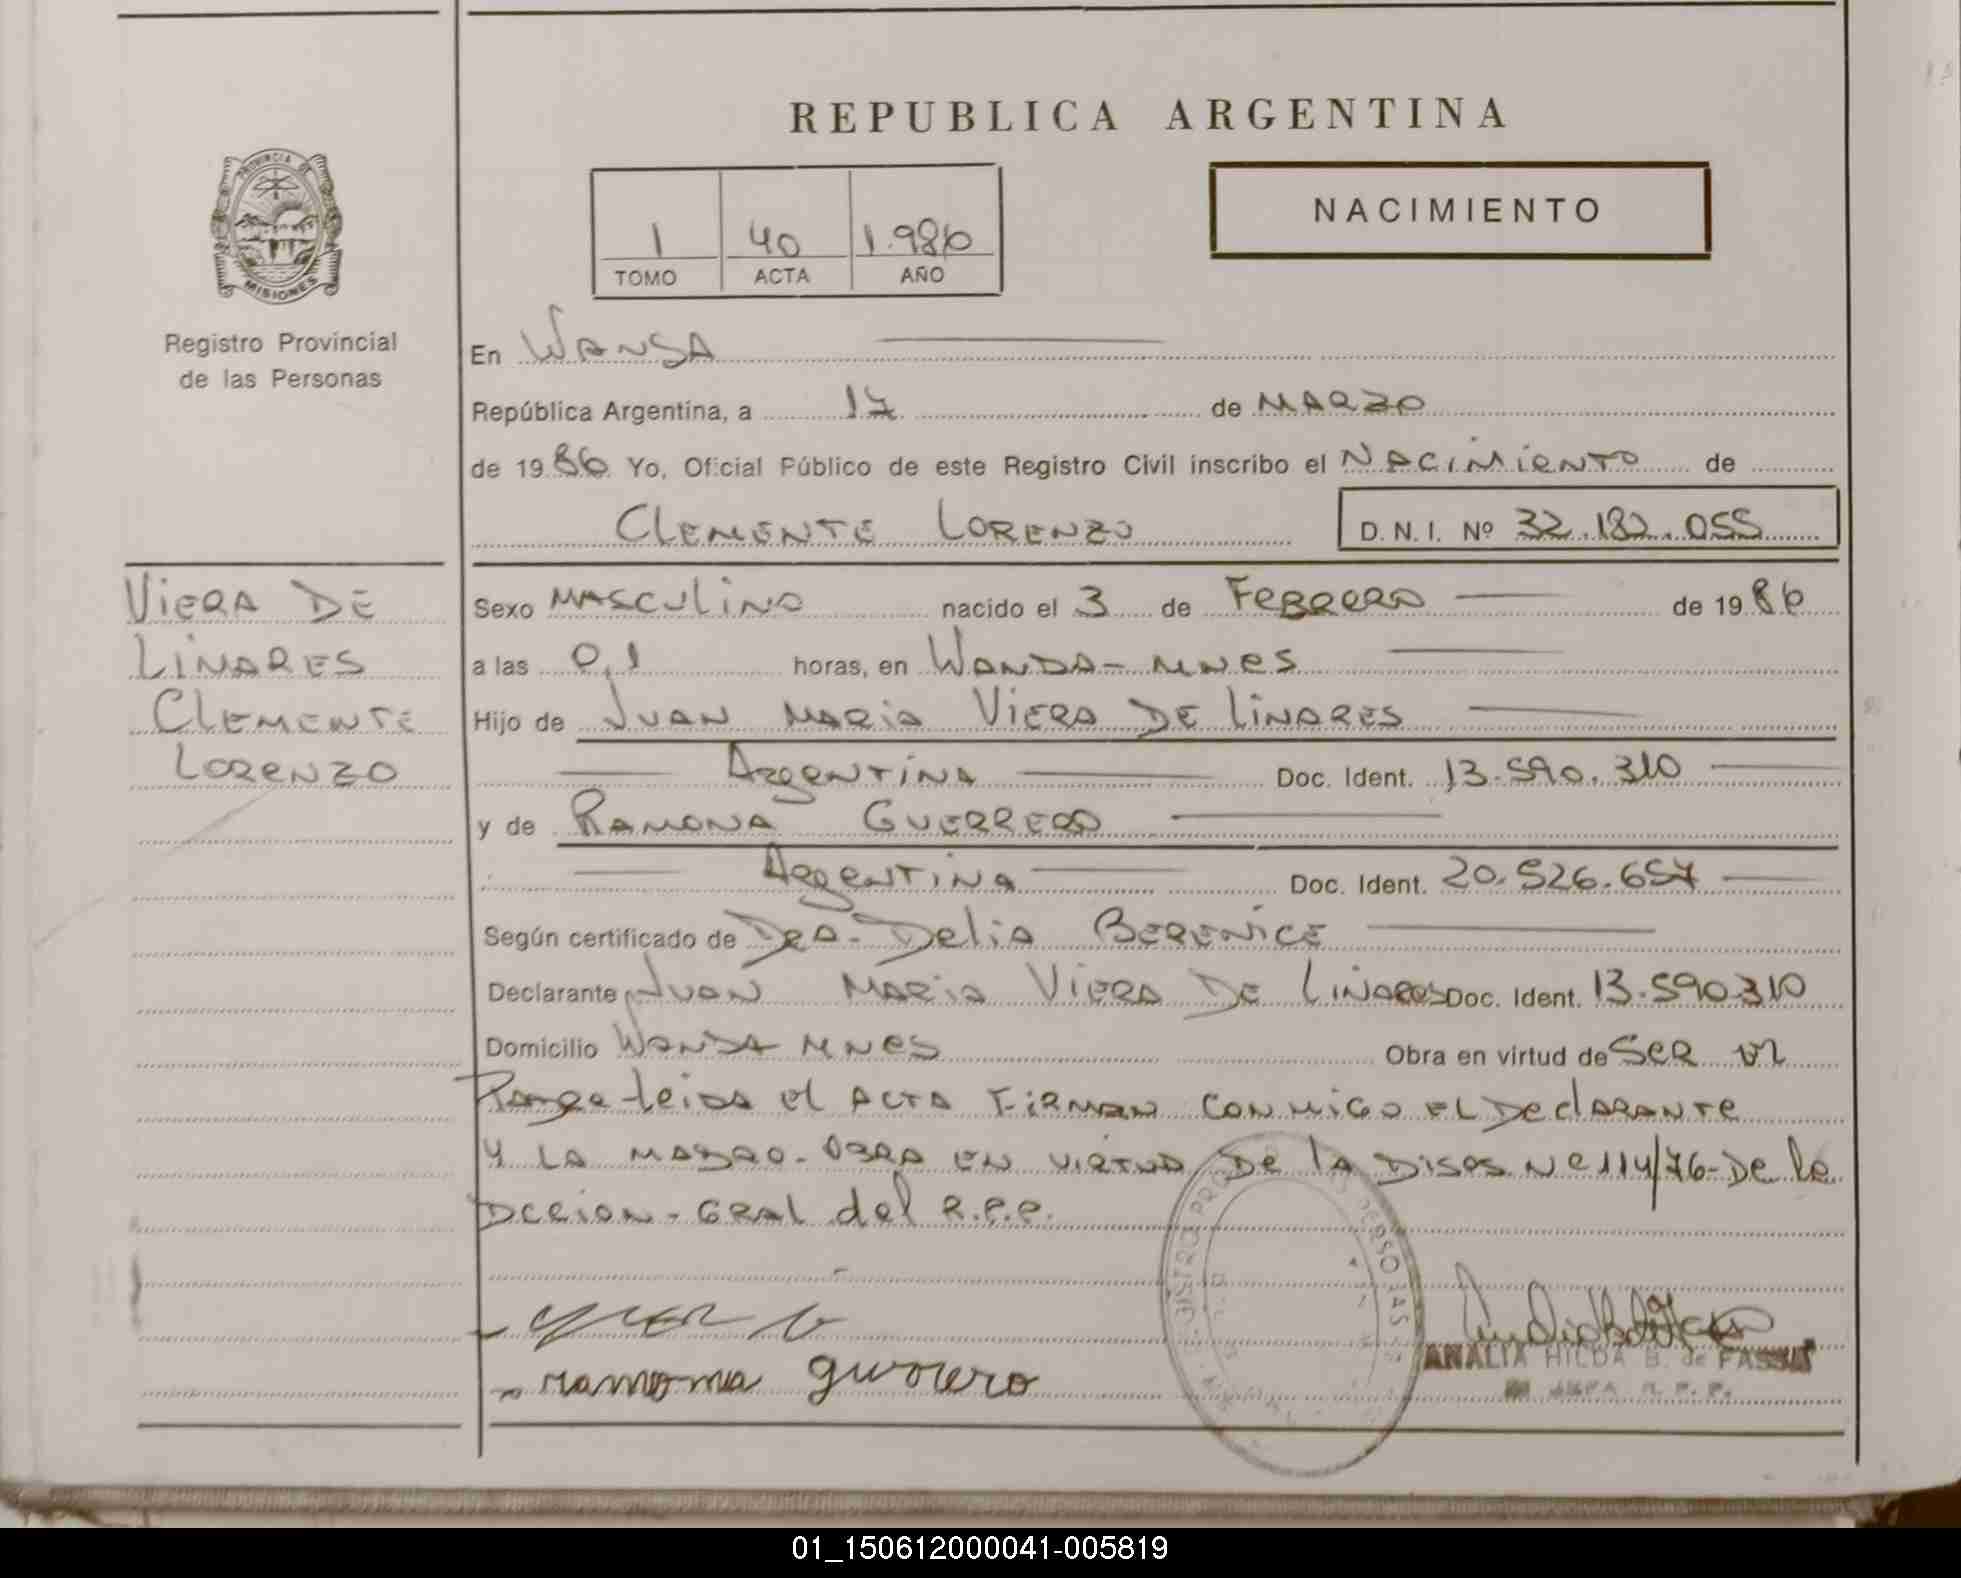 REPUBLICA ARGENTINA
1 40 1.986
TOMO ACTA AÑO
NACIMIENTO
PROVINCIA DE
MISIONES
Registro Provincial
de las Personas
En WANDA
República Argentina, a 17 de MARZO
de 19 86 Yo, Oficial Público de este Registro Civil inscribo el NACIMIENTO de
CLEMENTE LORENZO D.N.I. Nº 32.182.055
VIERA DE
LINARES
CLEMENTE
LORENZO
Sexo MASCULINO nacido el 3 de FEBRERO de 19 86
a las 0,1 horas, en WANDA-MNES
Hijo de JUAN MARIA VIERA DE LINARES
ARGENTINA Doc. Ident. 13.590.310
y de RAMONA GUERRERO
ARGENTINA Doc. Ident. 20.526.657
Según certificado de DRA. DELIA BERENICE
Declarante JUAN MARIA VIERA DE LINARES Doc. Ident. 13.590310
Domicilio WANDA MNES Obra en virtud de SER
leida el ACTA FIRMAN CONMIGO EL DECLARANTE
Y LA OBRA EN VIRTUD DE LA DISPS Nº 114/76-DE la
DCCION-GRAL del R.P.P.
ramoma
ANALIA HILDA B. de FASSA
JEFA R.P.P.
01_150612000041-005819